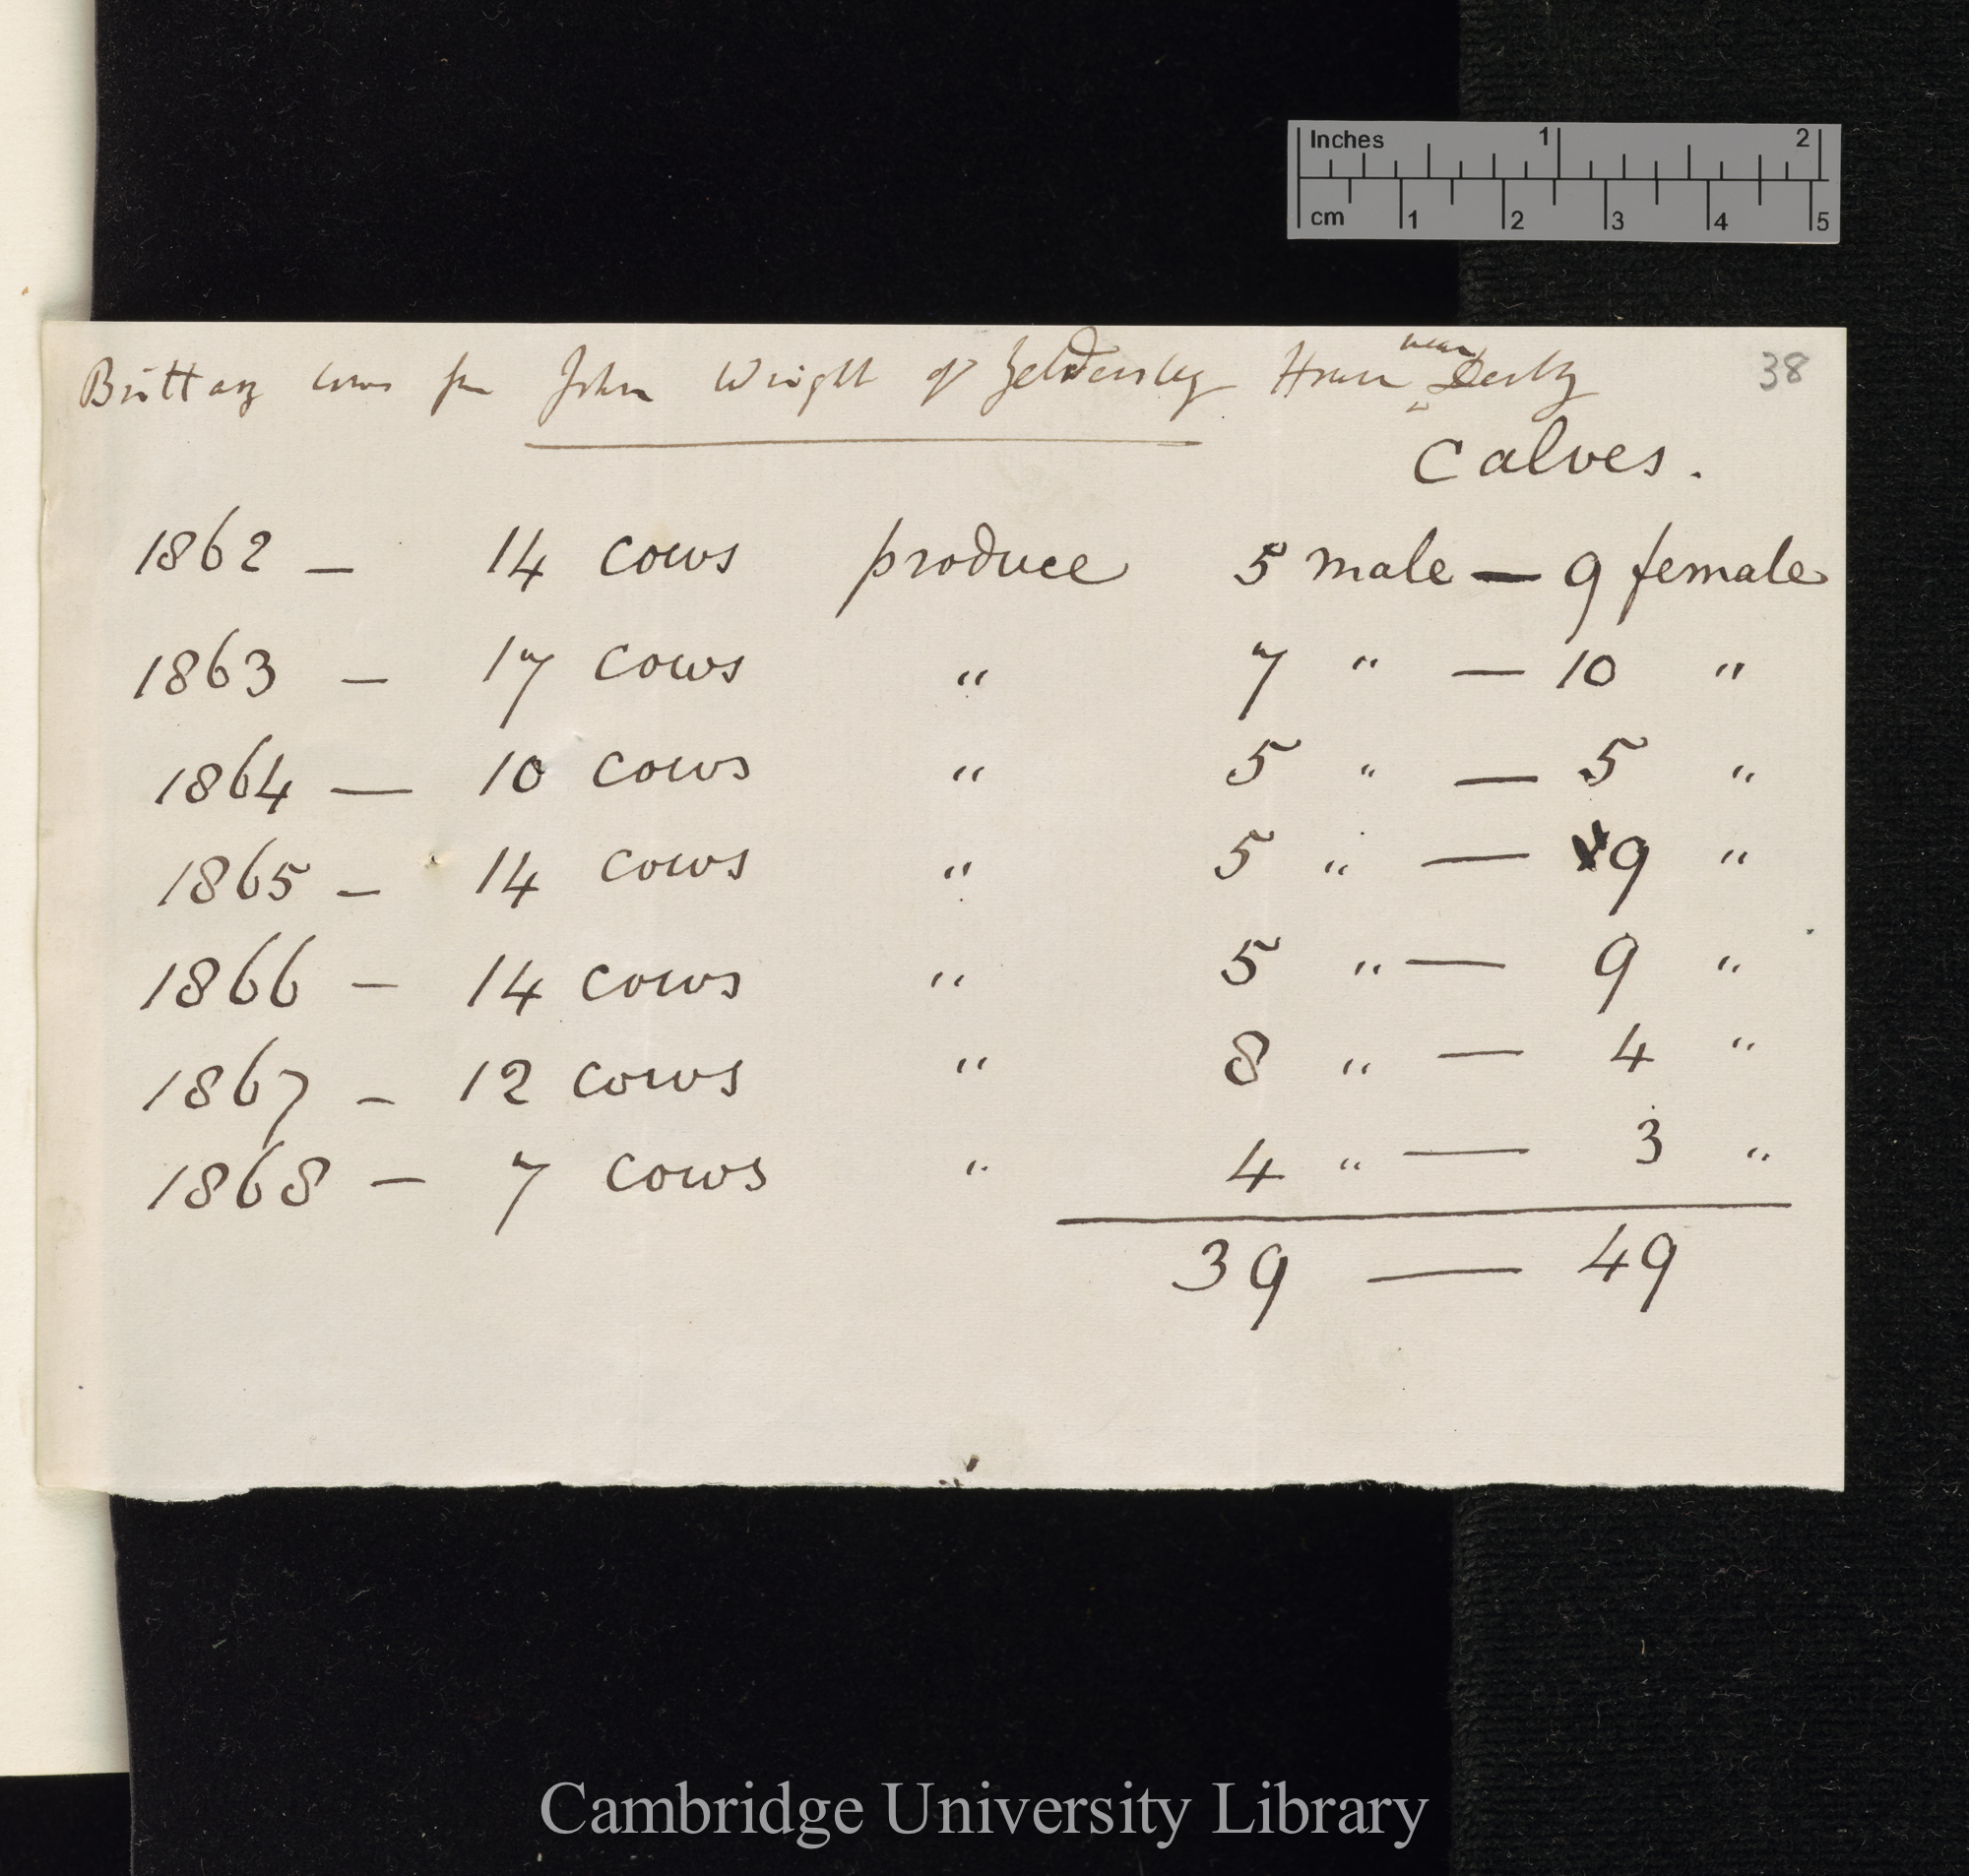 Inches 1 2
cm 1 2 3 4 5
38
near
Brittany cows from John Wright of Yeldersley House Derby
Calves.
1862 – 14 cows produce 5 male — 9 female
1863 – 17 cows " 7 " — 10 "
1864 — 10 cows " 5 " — 5 "
1865 – 14 cows " 5 " — 9 "
1866 – 14 cows " 5 " — 9 "
1867 – 12 cows " 8 " — 4 "
1868 – 7 cows " 4 " — 3 "
39 — 49
Cambridge University Library